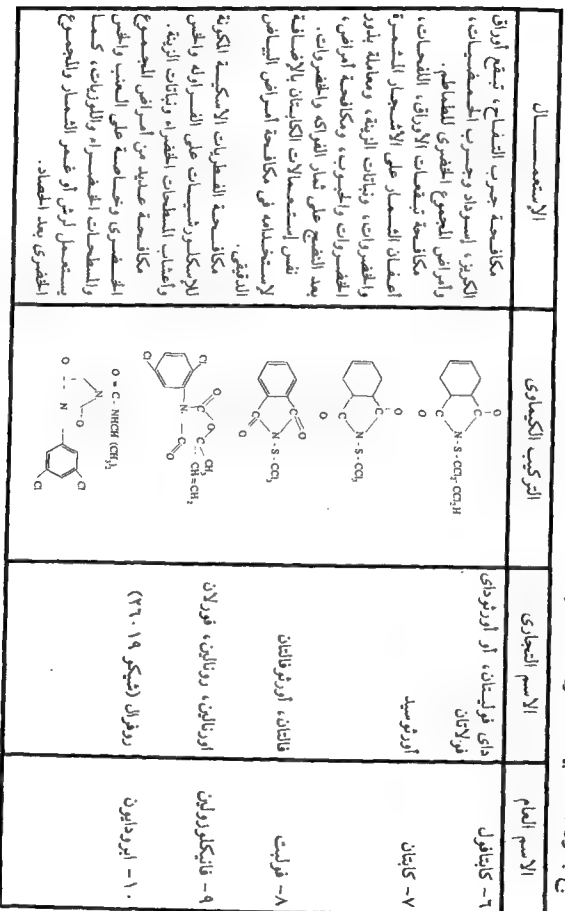 الاسم العام
الاسم التجارى
التركيب الكيماوى
الإستعمــــال
٦- كابتافول
داى فوليتان، أو أورثوداى
فولاتان
N - S - CCl₂- CCl₂H
O
C
مكافحة جرب التفاح، تبقع أوراق
الكريز، إسوداد وجرب الحمضيات،
وأمراض المجموع الخضرى للطماطم.
٧- كابتان
أورثوسيد
N - S - CCl₃
O
C
C
O
مكافحة تبقعات الأوراق، اللفحات،
أعفان الثمار على الأشجار المثمرة
والخضروات، ونباتات الزينة، ومعاملة بذور
الخضروات والحبوب، ومكافحة أمراض،
بعد النضج على ثمار الفواكه والخضروات.
٨- فولبت
فالتان، أورثوفالتان
N - S - CCl₃
C
O
C
O
نفس إستعمالات الكابتان بالإضافة
لإستخدامه فى مكافحة أمراض البياض
الدقيقى.
٩- فانيكلوزولين
اورنالين، رونالين، فورلان
Cl
Cl
N
C
O
O
C
CH₃
CH=CH₂
C
O
مكافحة الفطريات الاسكية المكونة
للإسكلوروشيات على الفراوله والخس
وأعشاب المسطحات الخضراء ونباتات الزينة.
١٠- ابرودايون
روفرال (شيكو ٢٦٠١٩)
O = C - NHCH (CH₃)₂
N
O
O
N
Cl
Cl
مكافحة عديد من أمراض المجموع
الخضرى وخاصة على العنب والخس
والمسطحات الخضراء واللوزيات، كما
يستعمل لرش أو غمر الثمار والمجموع
الخضرى بعد الحصاد.